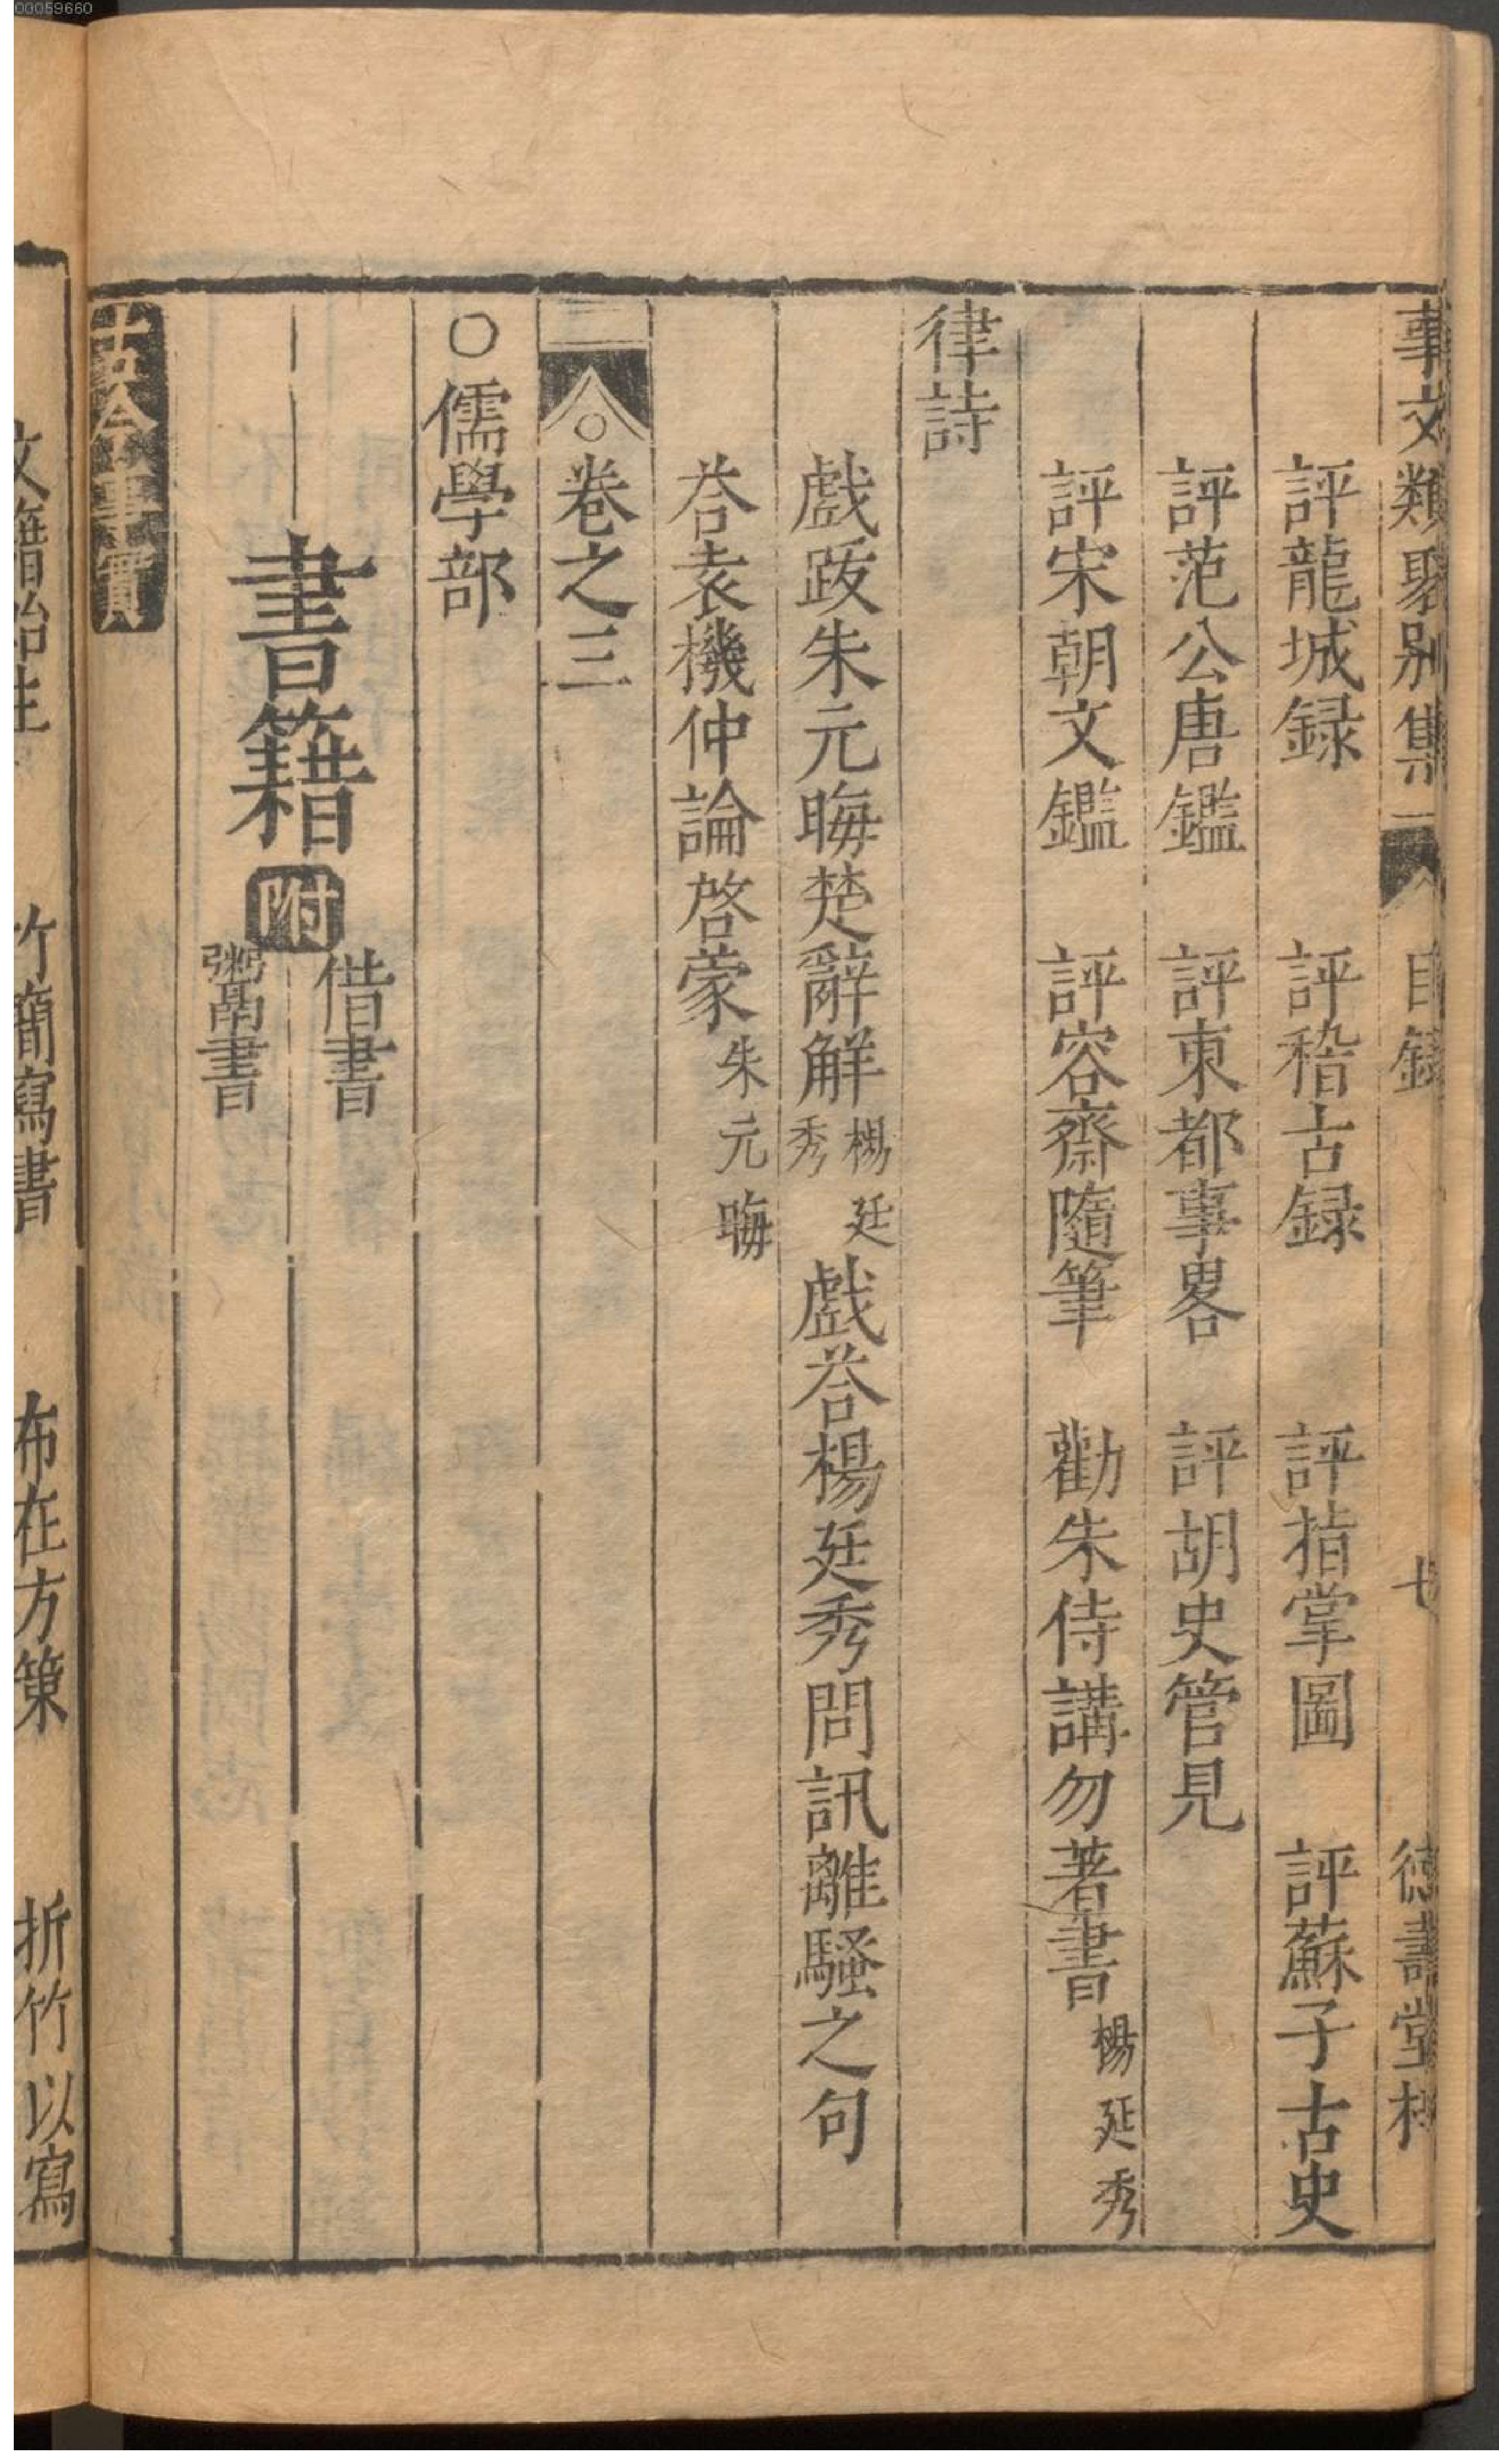 事文類聚別集 目錄 七 德壽堂梓
評龍城録 評稽古録 評指掌圖 評蘇子古史
評范公唐鑑 評東都事畧 評胡史管見
評宋朝文鑑 評容齋隨筆 勸朱侍講勿著書 楊延秀
律詩
戲跋朱元晦楚辭解 楊廷秀 戲荅楊廷秀問訊離騷之句
荅袁機仲論啓蒙 朱元晦
○卷之三
○儒學部
書籍 附 借書 鬻書
古今事實
文籍始生 竹簡寫書 布在方策 折竹以寫
00059660